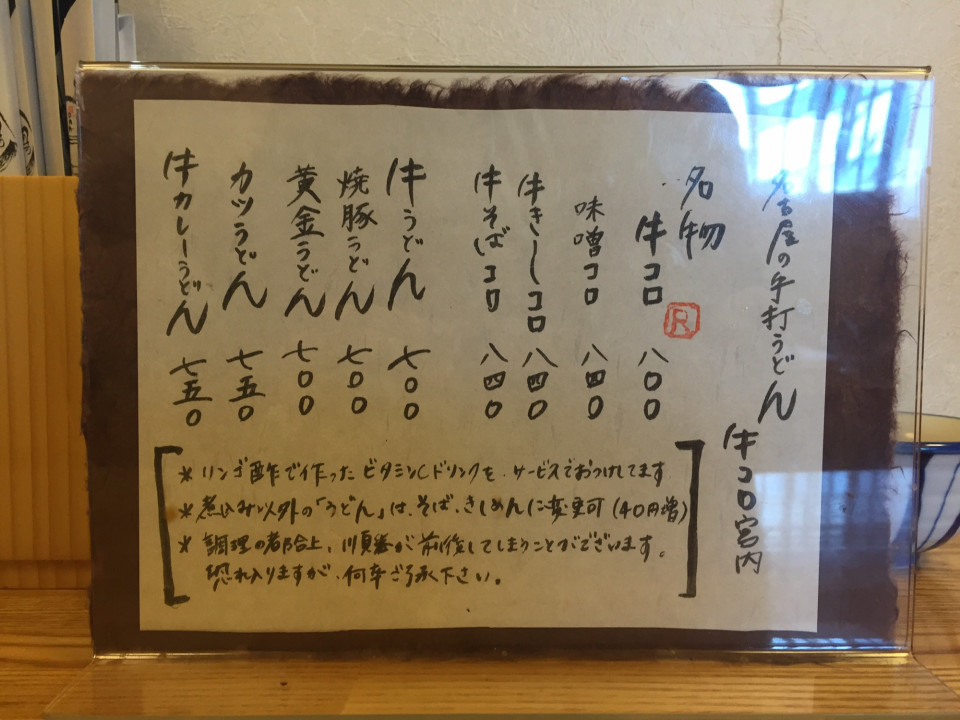 名古屋の手打うどん
牛コロ宮内
名物
R
牛コロ 八〇〇
味噌コロ 八四〇
牛きしコロ 八四〇
牛そばコロ 八四〇
牛うどん 七〇〇
焼豚うどん 七〇〇
黄金うどん 七〇〇
カツうどん 七五〇
牛カレーうどん 七五〇
*リンゴ酢で作ったビタミンCドリンクを、サービスでおつけしてます
*煮込み以外の「うどん」は、そば、きしめんに変更可(40円増)
*調理の都合上、順番が前後してしまうことがございます。
恐れ入りますが、何卒ご了承下さい。